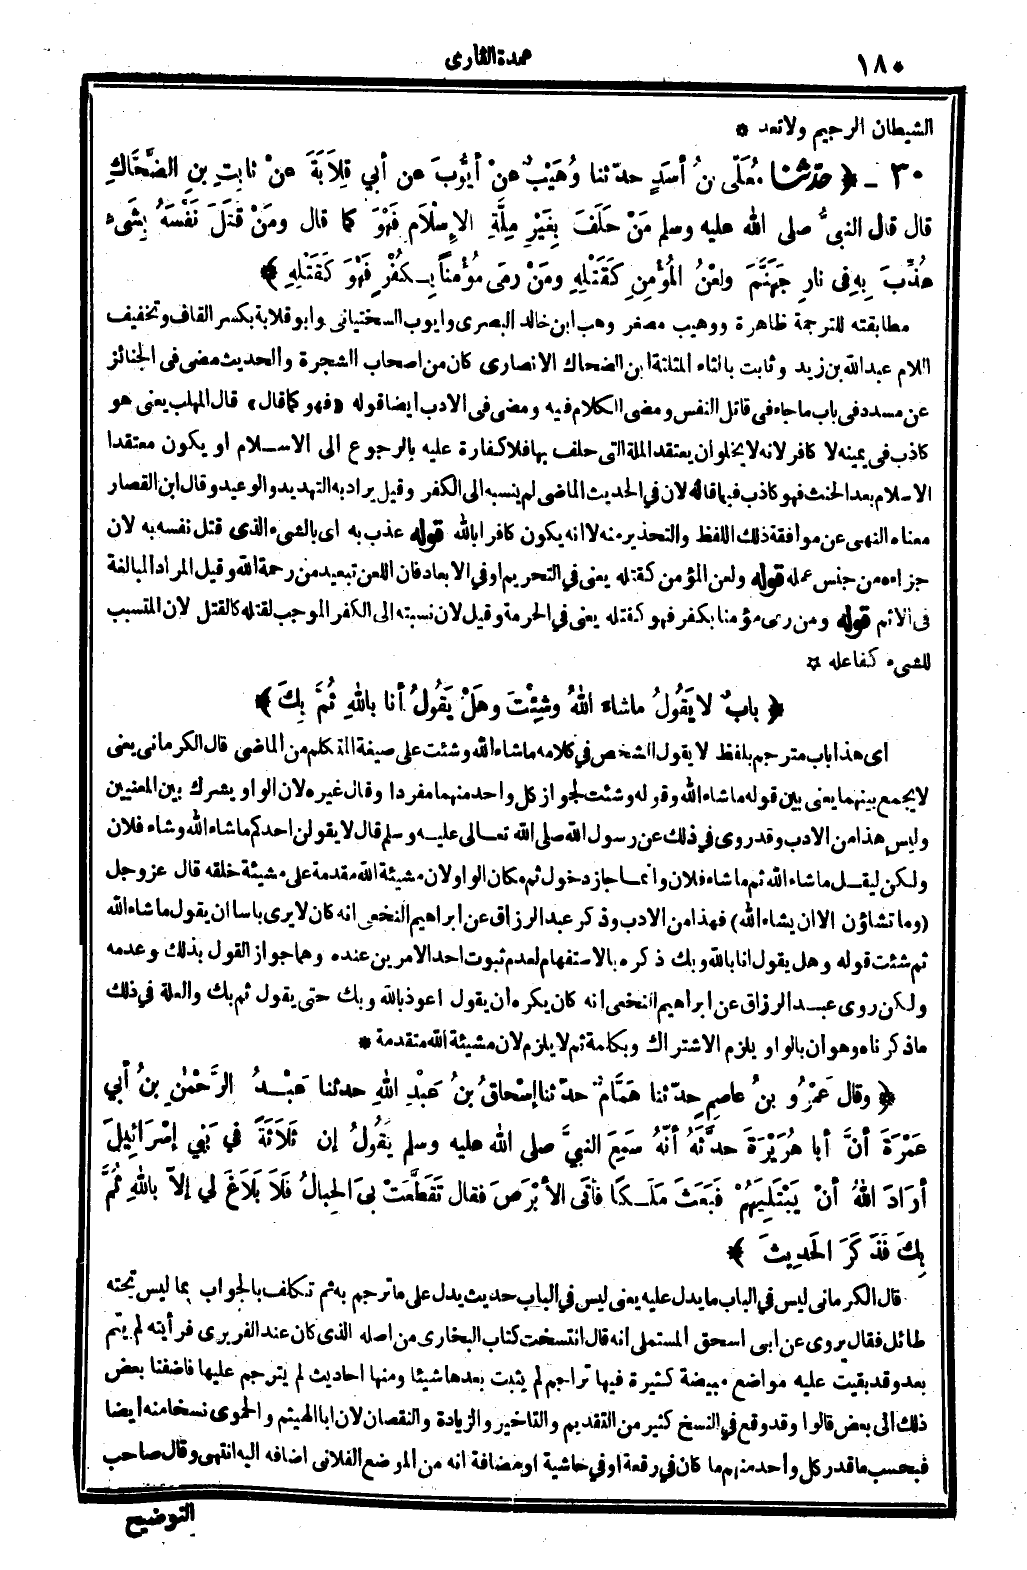 ١٨٠
عمدة القارى
الشيطان الرجيم ولا تعد *
٣٠ ـ ﴿ حَدَّثَنَا مُعَلَّى بنُ أسَدٍ حدّثنا وُهَيْبٌ عنْ أيُّوبَ عن أبي قِلَابَةَ عنْ ثابِتِ بنِ الضَّحَّاكِ
قال قال النبيُّ صلى الله عليه وسلم مَنْ حَلَفَ بِغَيْرِ مِلَّةِ الإِسْلَامِ فَهْوَ كما قال ومَنْ قَتَلَ نَفْسَهُ بِشَىْءٍ
عُذِّبَ بِهِ فى نارِ جَهَنَّمَ ولَعْنُ المُؤْمِنِ كَقَتْلِهِ ومَنْ رمَى مُؤْمِناً بِكُفْرٍ فَهْوَ كَقَتْلِهِ ﴾
مطابقته للترجمة ظاهرة ووهيب مصغر وهب ابن خالد البصرى وايوب السختيانى وابو قلابة بكسر القاف وتخفيف
اللام عبد الله بن زيد وثابت بالثاء المثلثة ابن الضحاك الانصارى كان من اصحاب الشجرة والحديث مضى فى الجنائز
عن مسدد فى باب ماجاء فى قاتل النفس ومضى الكلام فيه ومضى فى الادب ايضا قوله «فهو كما قال» قال المهلب يعنى هو
كاذب فى يمينه لا كافر لانه لا يخلو ان يعتقد الملة التى حلف بها فلا كفارة عليه بالرجوع الى الاسلام او يكون معتقدا
الاسلام بعد الحنث فهو كاذب فيها قاله لان في الحديث الماضى لم ينسبه الى الكفر وقيل يراد به التهديد والوعيد وقال ابن القصار
معناه النهى عن موافقة ذلك اللفظ والتحذير منه لا انه يكون كافرا بالله قوله عذب به اى بالشىء الذى قتل نفسه به لان
جزاءه من جنس عمله قوله ولعن المؤمن كقتله يعنى في التحريم او في الابعاد فان اللعن تبعيد من رحمة الله وقيل المراد المبالغة
فى الاثم قوله ومن رمى مؤمنا بكفر فهو كقتله يعنى في الحرمة وقيل لان نسبته الى الكفر الموجب لقتله كالقتل لان المتسبب
للشىء كفاعله ☆
﴿ بابٌ لا يَقُولُ ماشاءَ اللهُ وشِئْتَ وهَلْ يَقُولُ أنا باللهِ ثُمَّ بِكَ ﴾
اى هذا باب مترجم بلفظ لا يقول الشخص في كلامه ماشاء الله وشئت على صيغة المتكلم من الماضى قال الكرمانى يعنى
لا يجمع بينهما يعنى بين قوله ماشاء الله وقوله وشئت لجواز كل واحد منهما مفردا وقال غيره لان الواو يشرك بين المعنيين
وليس هذا من الادب وقد روى في ذلك عن رسول الله صلى الله تعالى عليه وسلم قال لا يقولن احدكم ماشاء الله وشاء فلان
ولكن ليقل ماشاء الله ثم ماشاء فلان وانما جاز دخول ثم مكان الواو لان مشيئة الله مقدمة على مشيئة خلقه قال عز وجل
(وما تشاؤن الا ان يشاء الله) فهذا من الادب وذكر عبد الرزاق عن ابراهيم النخعى انه كان لا يرى باسا ان يقول ماشاء الله
ثم شئت قوله وهل يقول انا بالله وبك ذكره بالاستفهام لعدم ثبوت احد الامرين عنده وهما جواز القول بذلك وعدمه
ولكن روى عبد الرزاق عن ابراهيم النخعى انه كان يكره ان يقول اعوذ بالله وبك حتى يقول ثم بك والعلة في ذلك
ماذكرناه وهو ان بالواو يلزم الاشتراك وبكلمة ثم لا يلزم لان مشيئة الله متقدمة *
﴿ وقال عَمْرُو بنُ عاصِمٍ حدّثنا هَمَّامٌ حدّثنا إسْحَاقُ بنُ عَبْدِ اللهِ حدثنا عَبْدُ الرَّحْمٰنِ بنُ أبي
عَمْرَةَ أنَّ أبا هُرَيْرَةَ حدَّثَهُ أنَّهُ سَمِعَ النبيَّ صلى الله عليه وسلم يَقُولُ إن ثَلَاثَةً في بَنِي إسْرَائِيلَ
أرَادَ اللهُ أنْ يَبْتَلِيَهُمْ فَبَعَثَ مَلَكاً فأتَى الأبْرَصَ فقال تَقَطَّعَتْ بِىَ الحِبالُ فَلَا بَلَاغَ لِي إلاّ باللهِ ثُمَّ
بِكَ فَذَكَرَ الحَدِيثَ ﴾
قال الكرمانى ليس في الباب ما يدل عليه يعنى ليس في الباب حديث يدل على ماترجم به ثم تكلف بالجواب بما ليس تحته
طائل فقال يروى عن ابى اسحق المستملى انه قال انتسخت كتاب البخارى من اصله الذى كان عند الفربرى فرأيته لم يتم
بعد وقد بقيت عليه مواضع مبيضة كثيرة فيها تراجم لم يثبت بعدها شيئا ومنها احاديث لم يترجم عليها فاضفنا بعض
ذلك الى بعض قالوا وقد وقع في النسخ كثير من التقديم والتاخير والزيادة والنقصان لان ابا الهيثم والحموى نسخا منه ايضا
فبحسب ما قدر كل واحد منهم ما كان في رقعة او في حاشية او مضافة انه من الموضع الفلانى اضافه اليه انتهى وقال صاحب
التوضيح